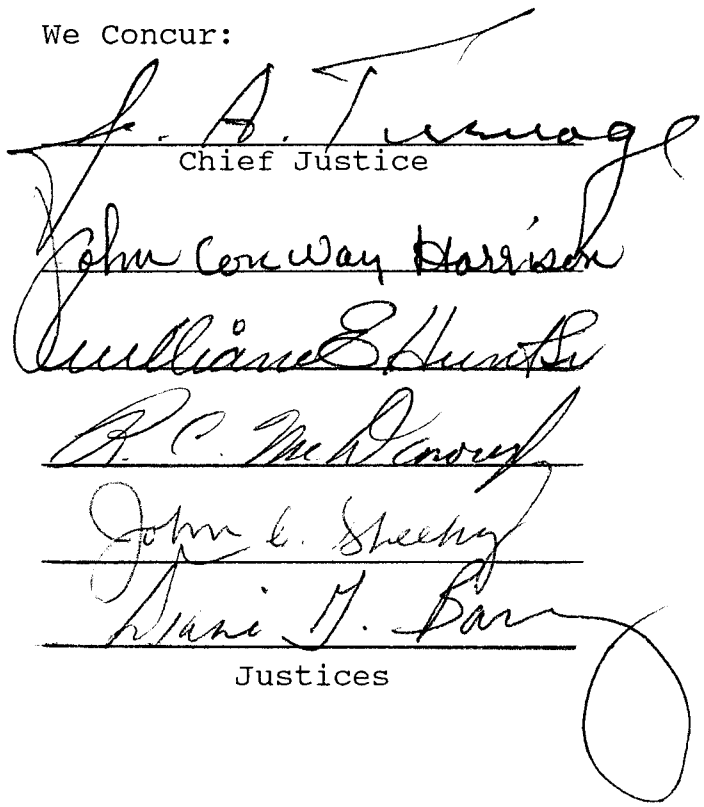 We Concur:
J. A. Turnage
Chief Justice
John Conway Harrison
William E Hunt Sr
R. C. McDonough
John C. Sheehy
Diane G. Barz
Justices